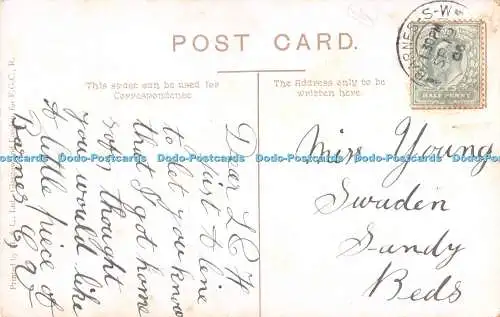 POST CARD.
This space can be used for
Correspondence
The Address only to be
written here.
BARNES S.W.
HALF PENNY
Miss Young
Swaden
Sandy
Beds
Dear L & H
Just a line
to let you know
that I got home
safe thought
you would like
a little piece of
Barnes
Dodo-Postcards Dodo-Postcards Dodo-Postcards Dodo-Postcards Dodo-Postcards